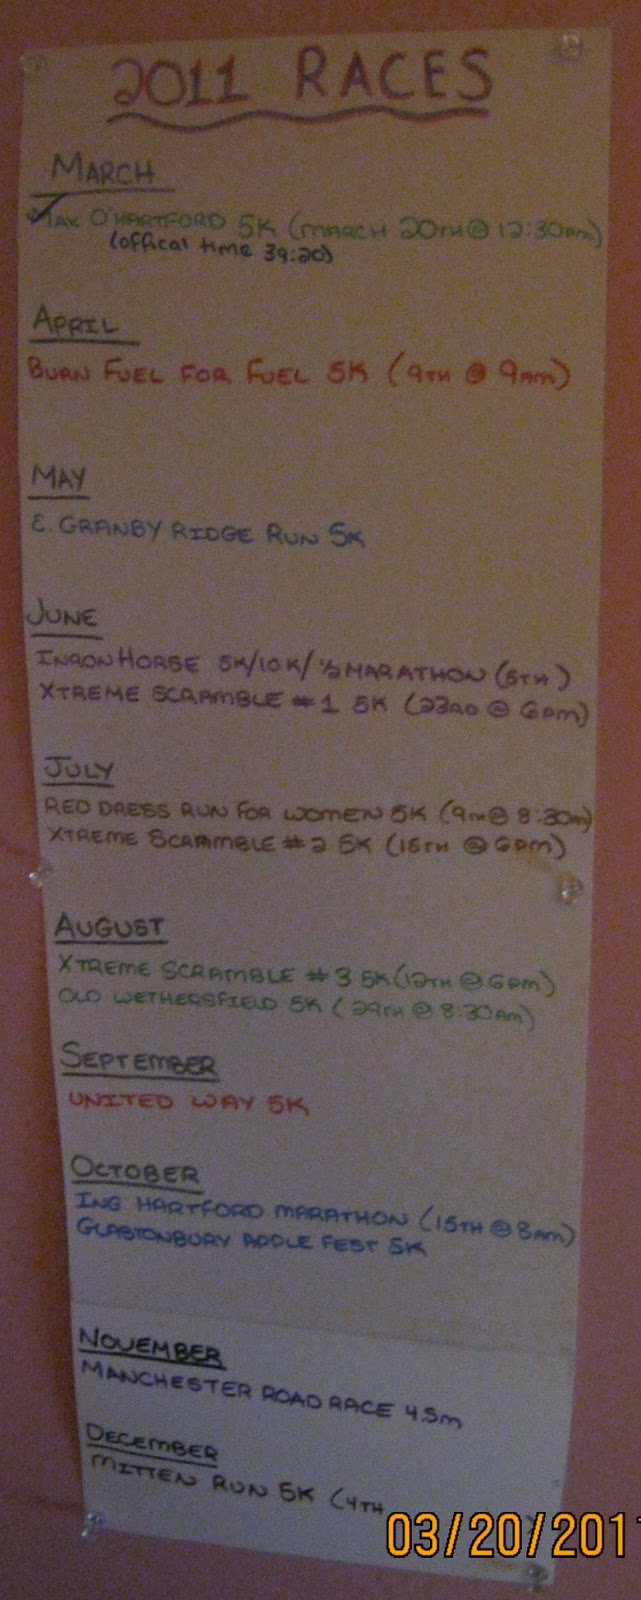 2011 RACES
MARCH
MAX O'HARTFORD 5K (MARCH 20TH @ 12:30pm)
(offical time 39:20)
APRIL
BURN FUEL FOR FUEL 5K (9TH @ 9Am)
MAY
E. GRANBY RIDGE RUN 5K
JUNE
INRON HORSE 5K/10K/ ½ MARATHON (5TH)
XTREME SCRAMBLE #1 5K (23RD @ 6pm)
JULY
RED DRESS RUN FOR WOMEN 5K (9TH @ 8:30Am)
XTREME SCRAMBLE #2 5K (15TH @ 6pm)
AUGUST
XTREME SCRAMBLE #3 5K (12TH @ 6pm)
OLD WETHERSFIELD 5K (29TH @ 8:30Am)
SEPTEMBER
UNITED WAY 5K
OCTOBER
ING HARTFORD MARATHON (15TH @ 8Am)
GLASTONBURY APPLE FEST 5K
NOVEMBER
MANCHESTER ROAD RACE 4.5m
DECEMBER
MITTEN RUN 5K (4TH
03/20/2011